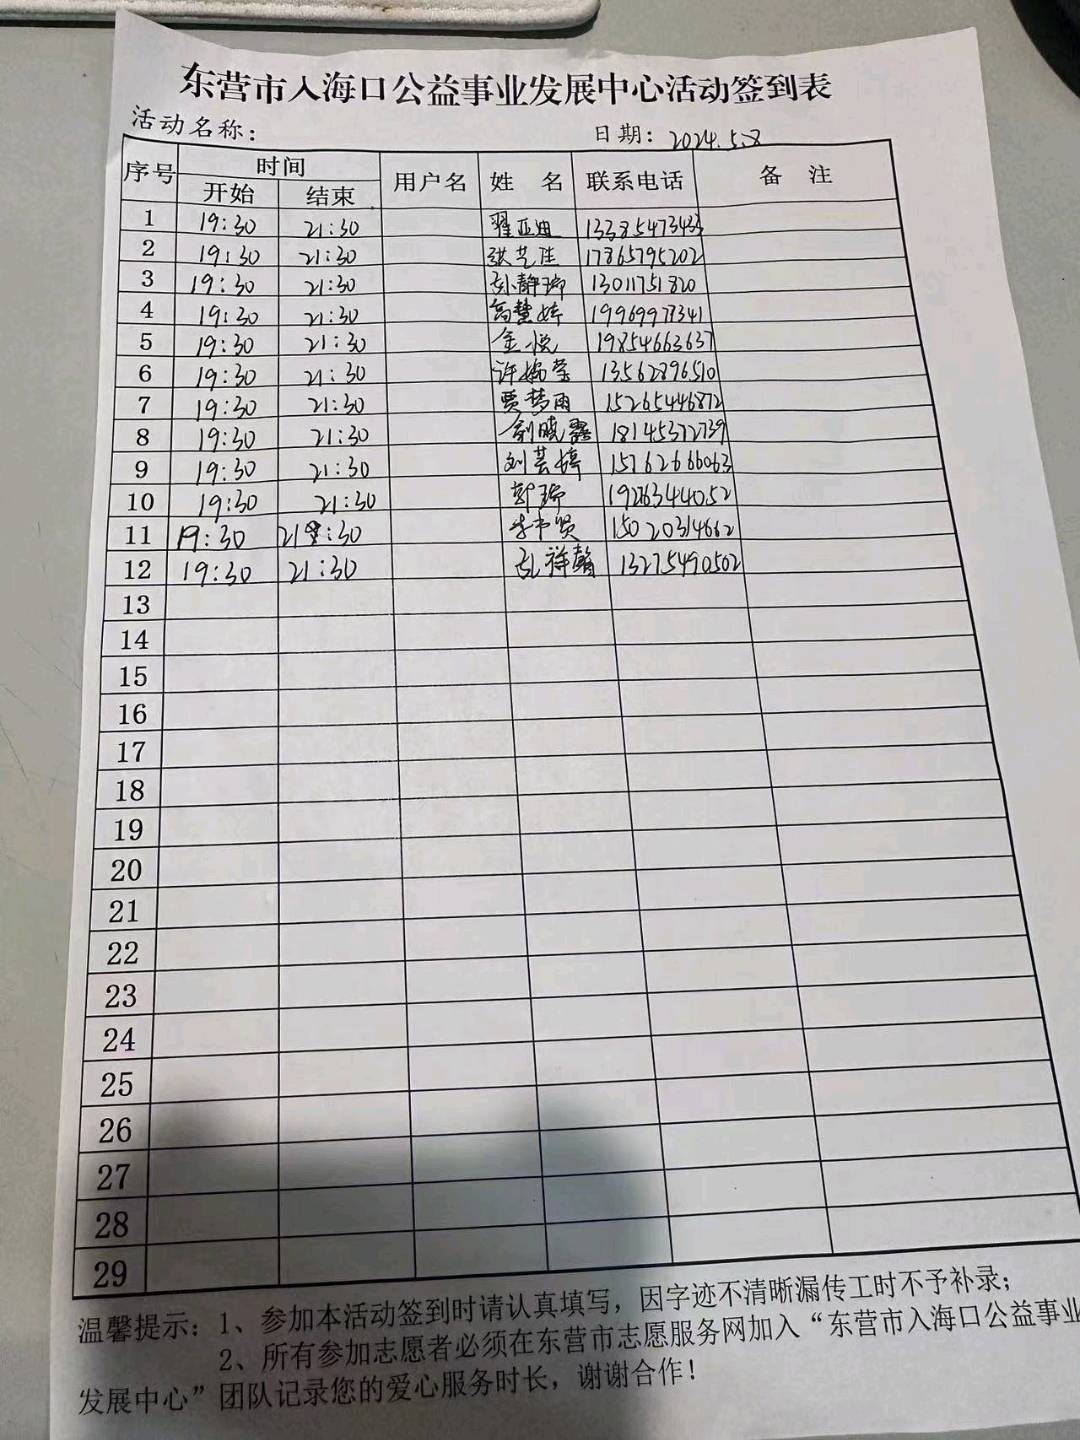 东营市入海口公益事业发展中心活动签到表
活动名称： 日期：2024.5.8
序号 时间 用户名 姓 名 联系电话 备 注
开始 结束
1 19:30 21:30 翟亚迪 13385473433
2 19:30 21:30 张艺佳 17865795202
3 19:30 21:30 孙静瑞 13011751820
4 19:30 21:30 高慧婷 19969978341
5 19:30 21:30 金悦 19854663637
6 19:30 21:30 许婉莹 13562896510
7 19:30 21:30 贾梦雨 15265446872
8 19:30 21:30 刘晓露 18145372739
9 19:30 21:30 刘芸婷 15762666063
10 19:30 21:30 郭瑞 19263444052
11 19:30 21:30 贤 15020314662
12 19:30 21:30 孔祥馨 13275490502
13
14
15
16
17
18
19
20
21
22
23
24
25
26
27
28
29
温馨提示：1、参加本活动签到时请认真填写，因字迹不清晰漏传工时不予补录；
2、所有参加志愿者必须在东营市志愿服务网加入“东营市入海口公益事业
发展中心”团队记录您的爱心服务时长，谢谢合作！